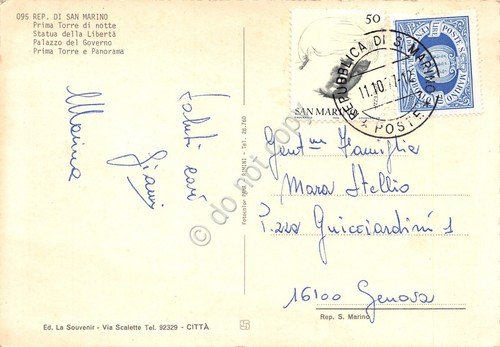 095 REP. DI SAN MARINO
Prima Torre di notte
Statua della Libertà
Palazzo del Governo
Prima Torre e Panorama
Saluti cari
Gianni
Marina
Fotocolor RIMINI - Tel. 26.760
50
SAN MARINO
POSTE S. MARINO
REPUBBLICA DI S. MARINO
11.10.77-12
POSTE
Gent.me Famiglia
Mara Stellio
P.zza Guicciardini 1
16100 Genova
Rep. S. Marino
Ed. La Souvenir - Via Scalette Tel. 92329 - CITTÀ
do not copy